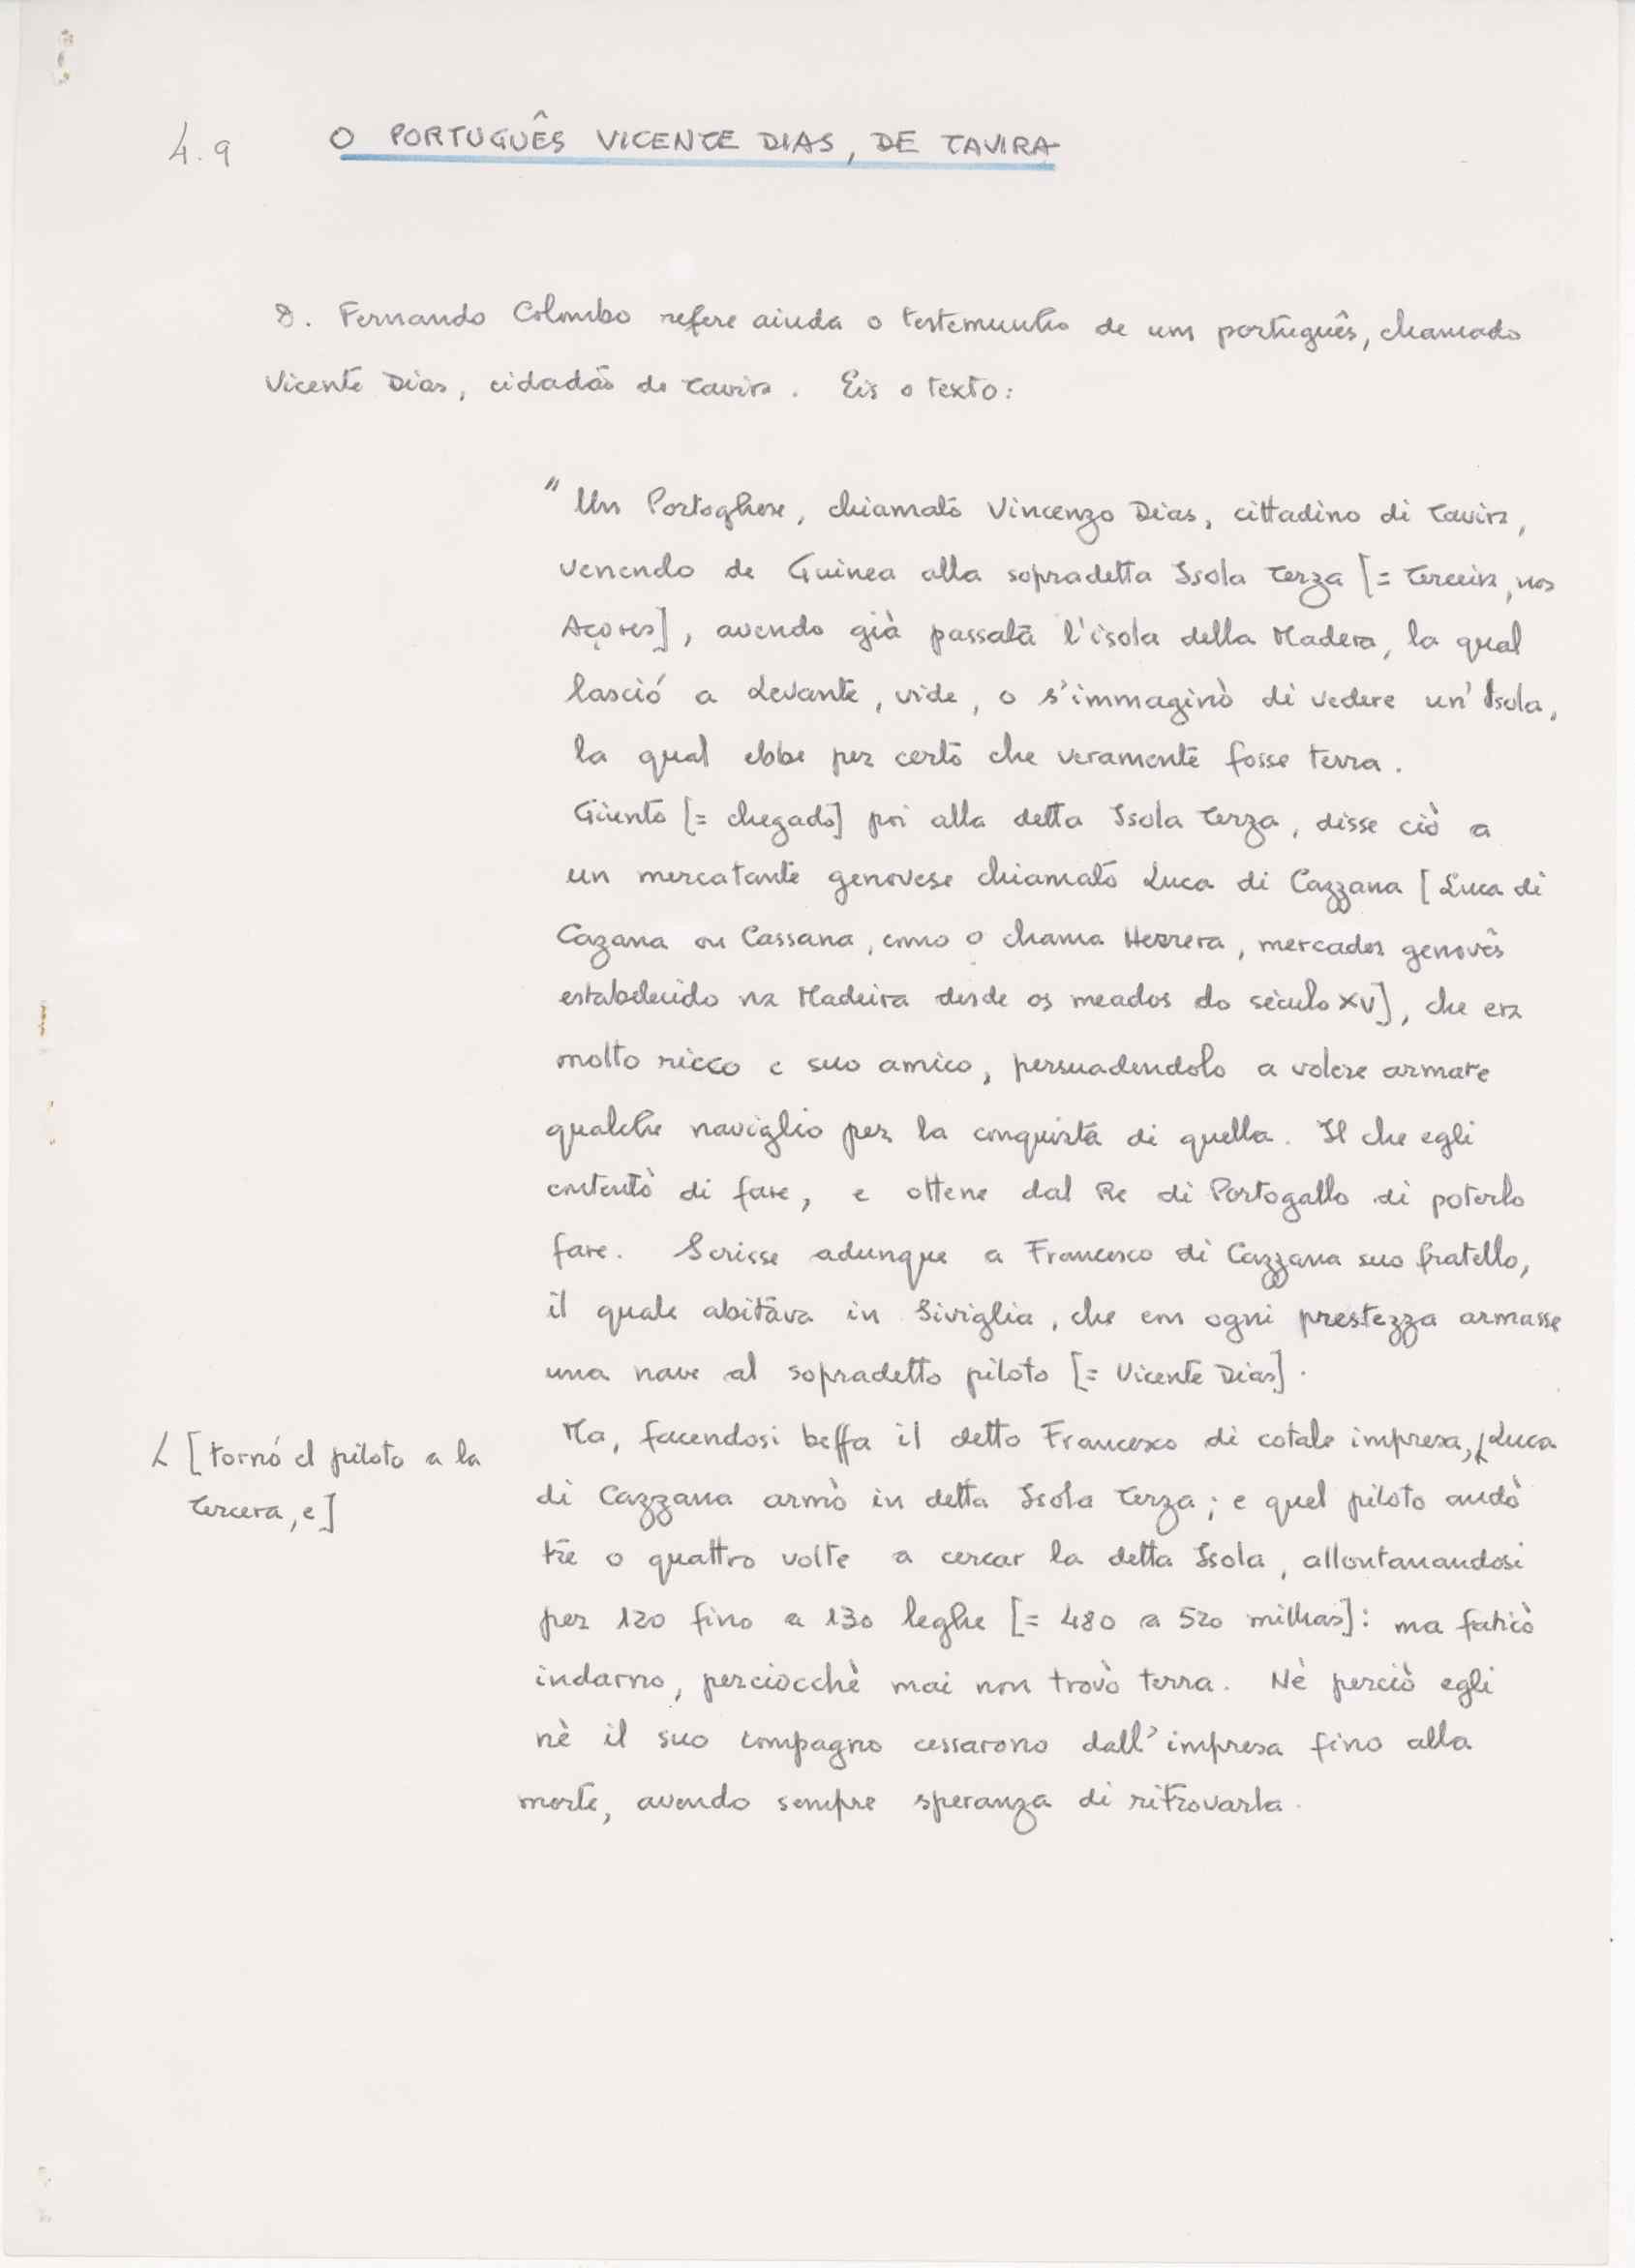 4.9 O PORTUGUÊS VICENTE DIAS, DE TAVIRA
8. Fernando Colombo refere ainda o testemunho de um português, chamado
Vicente Dias, cidadão de Tavira. Eis o texto:
"Un Portoghese, chiamato Vincenzo Dias, cittadino di Tavira,
venendo de Guinea alla sopradetta Isola Terza [= Terceira, nos
Açores], avendo già passata l'isola della Madera, la qual
lasció a Levante, vide, o s'immaginò di vedere un'Isola,
la qual ebbe per certo che veramente fosse terra.
Giunto [= chegado] poi alla detta Isola Terza, disse ciò a
un mercatante genovese chiamato Luca di Cazzana [Luca di
Cazana ou Cassana, como o chama Herrera, mercador genovês
estabelecido na Madeira desde os meados do século XV], che era
molto ricco e suo amico, persuadendolo a volere armare
qualche naviglio per la conquista di quella. Il che egli
contentò di fare, e ottene dal Re di Portogallo di poterlo
fare. Scrisse adunque a Francesco di Cazzana suo fratello,
il quale abitava in Siviglia, che con ogni prestezza armasse
una nave al sopradetto piloto [= Vicente Dias].
Ma, facendosi beffa il detto Francesco di cotale impresa, L Luca
L [tornó el piloto a la
Tercera, e]
di Cazzana armò in detta Isola Terza; e quel piloto andò
tre o quattro volte a cercar la detta Isola, allontanandosi
per 120 fino a 130 leghe [= 480 a 520 milhas]: ma faticò
indarno, perciocchè mai non trovò terra. Nè perciò egli
nè il suo compagno cessarono dall'impresa fino alla
morte, avendo sempre speranza di ritrovarla.